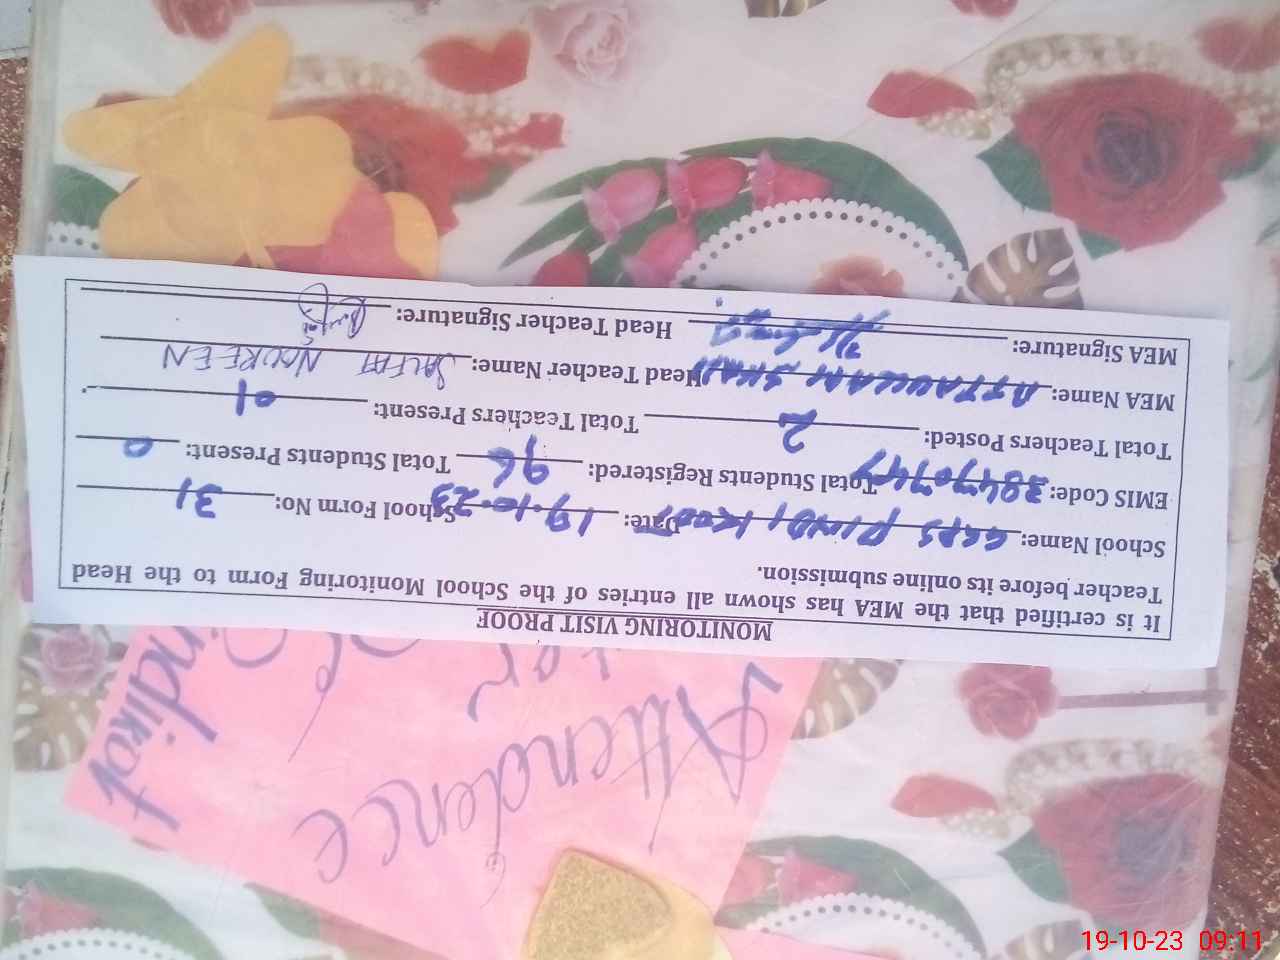 MONITORING VISIT PROOF
It is certified that the MEA has shown all entries of the School Monitoring Form to the Head
Teacher before its online submission.
School Name: GGPS PINDI KOOT Date: 19.10.23 School Form No: 31
EMIS Code: Total Students Registered: 96 Total Students Present: 0
Total Teachers Posted: 2 Total Teachers Present: 01
MEA Name: ATTAULLAH SHAH Head Teacher Name: NOUREEN
MEA Signature: Head Teacher Signature:
Attendence
Pindikot
19-10-23 09:11